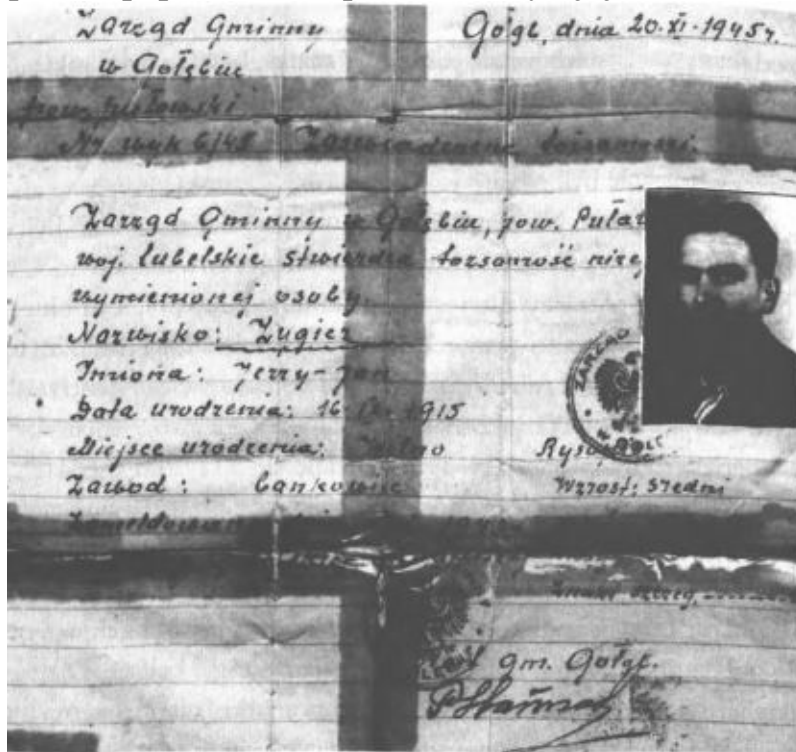 Zarząd Gminny Gołąb, dnia 20.XI.1945r.
w Gołębiu
pow. Puławski
Nr. wyk 6/45 Zaświadczenie tożsamości.
Zarząd Gminny w Gołębiu, pow. Puław
woj. lubelskie stwierdza tożsamość niżej
wymienionej osoby.
Nazwisko: Żugier
Imiona: Jerzy-Jan
Data urodzenia: 1915
Miejsce urodzenia:
Rys
Zawód: bankowiec
Wzrost: średni
ZARZĄD
gm. Gołąb.